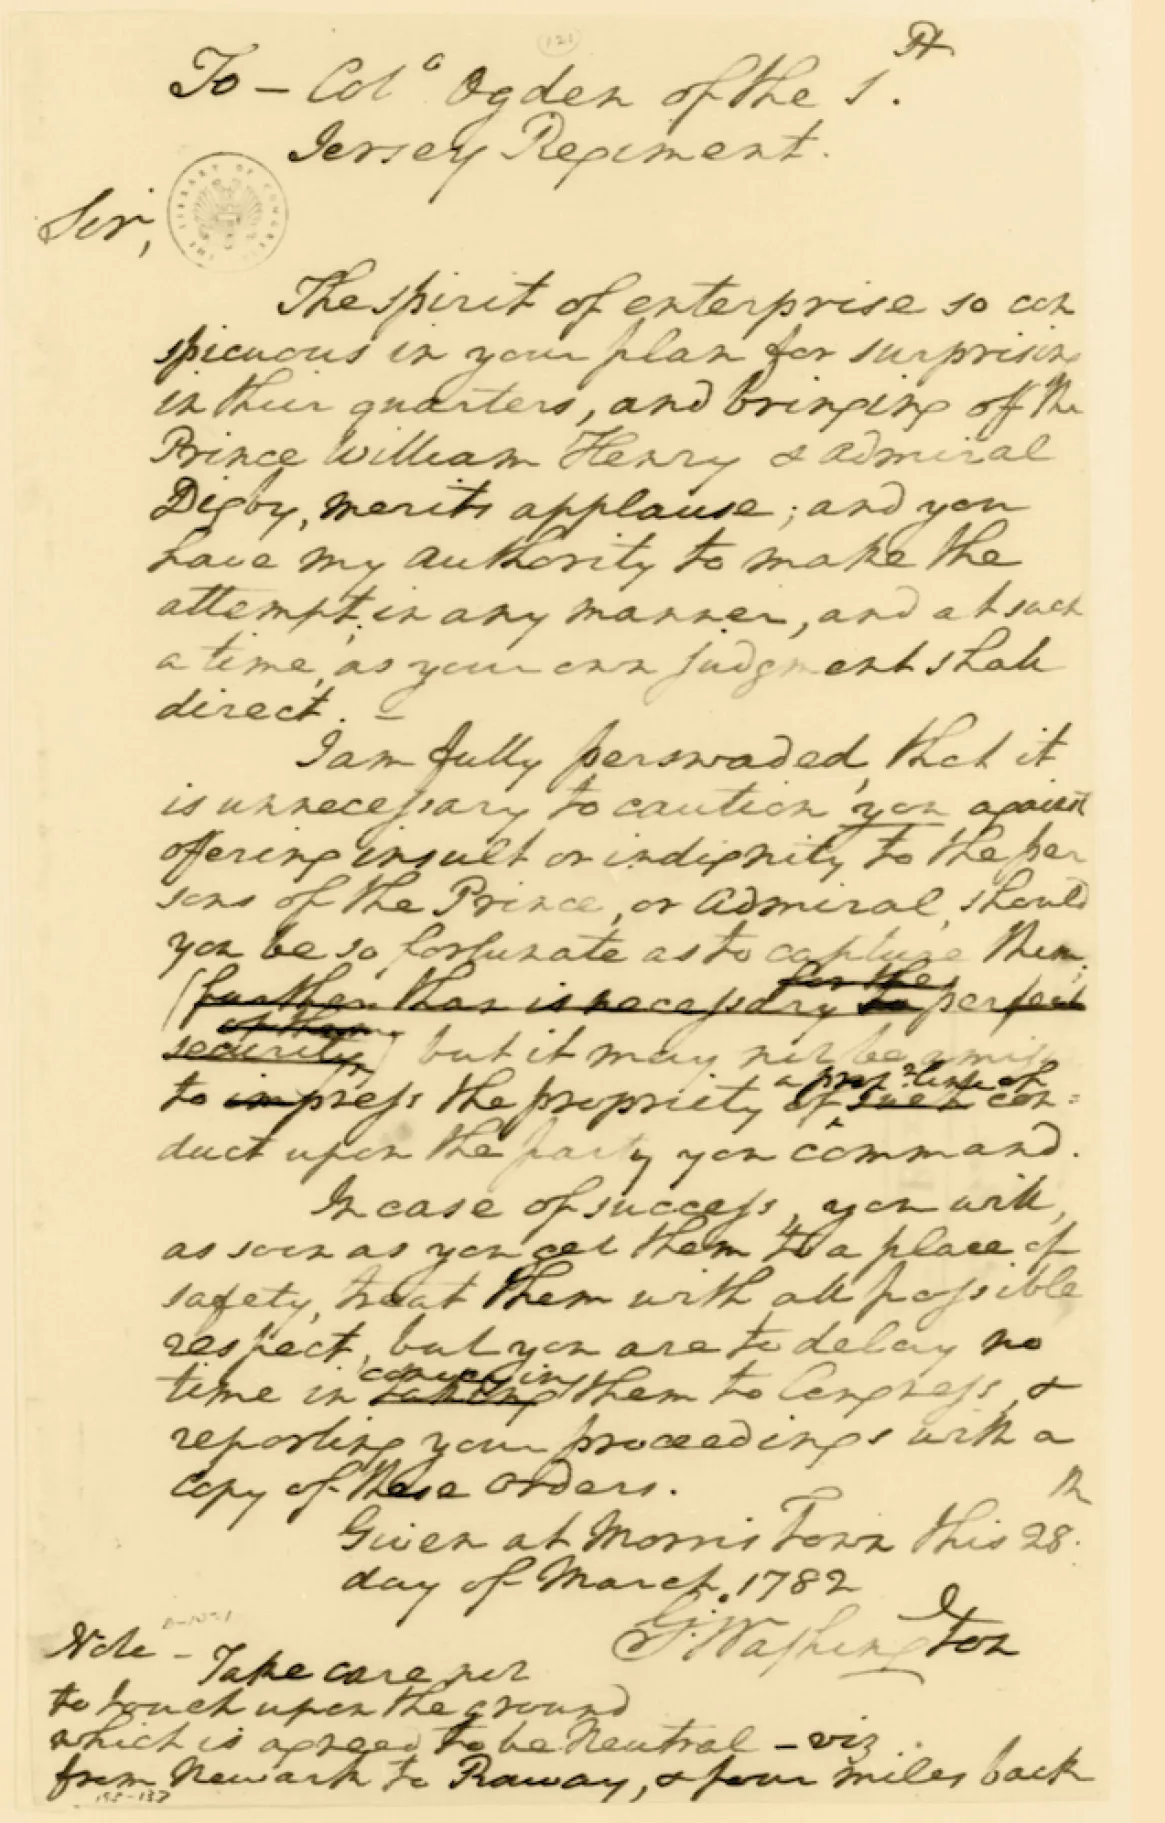 (121)
To – Colo Ogden of the 1.st
Jersey Regiment.
THE LIBRARY OF CONGRESS
Sir,
The spirit of enterprise so con
spicuous in your plan for surprising
in their quarters, and bringing off the
Prince William Henry & Admiral
Digby, merits applause; and you
have my authority to make the
attempt; in any manner, and at such
a time, as your own judgment shall
direct. –
I am fully perswaded, that it
is unnecessary to caution you against
offering insult or indignity to the per
sons of the Prince, or Admiral, should
you be so fortunate as to capture them;
for the
(further than is necessary to perfect
of them
security) but it may not be amiss
a proper line of
to impress the propriety of such con=
duct upon the party you command.
In case of success, you will,
as soon as you get them to a place of
safety, treat them with all possible
respect, but you are to delay no
conveying
time in taking them to Congress, &
reporting your proceedings with a
copy of these orders.
Given at Morris Town this 28th.
day of March, 1782
G:Washington
Note – Take care not
to touch upon the ground
which is agreed to be Neutral – viz.
from Newark to Raway, & four miles back